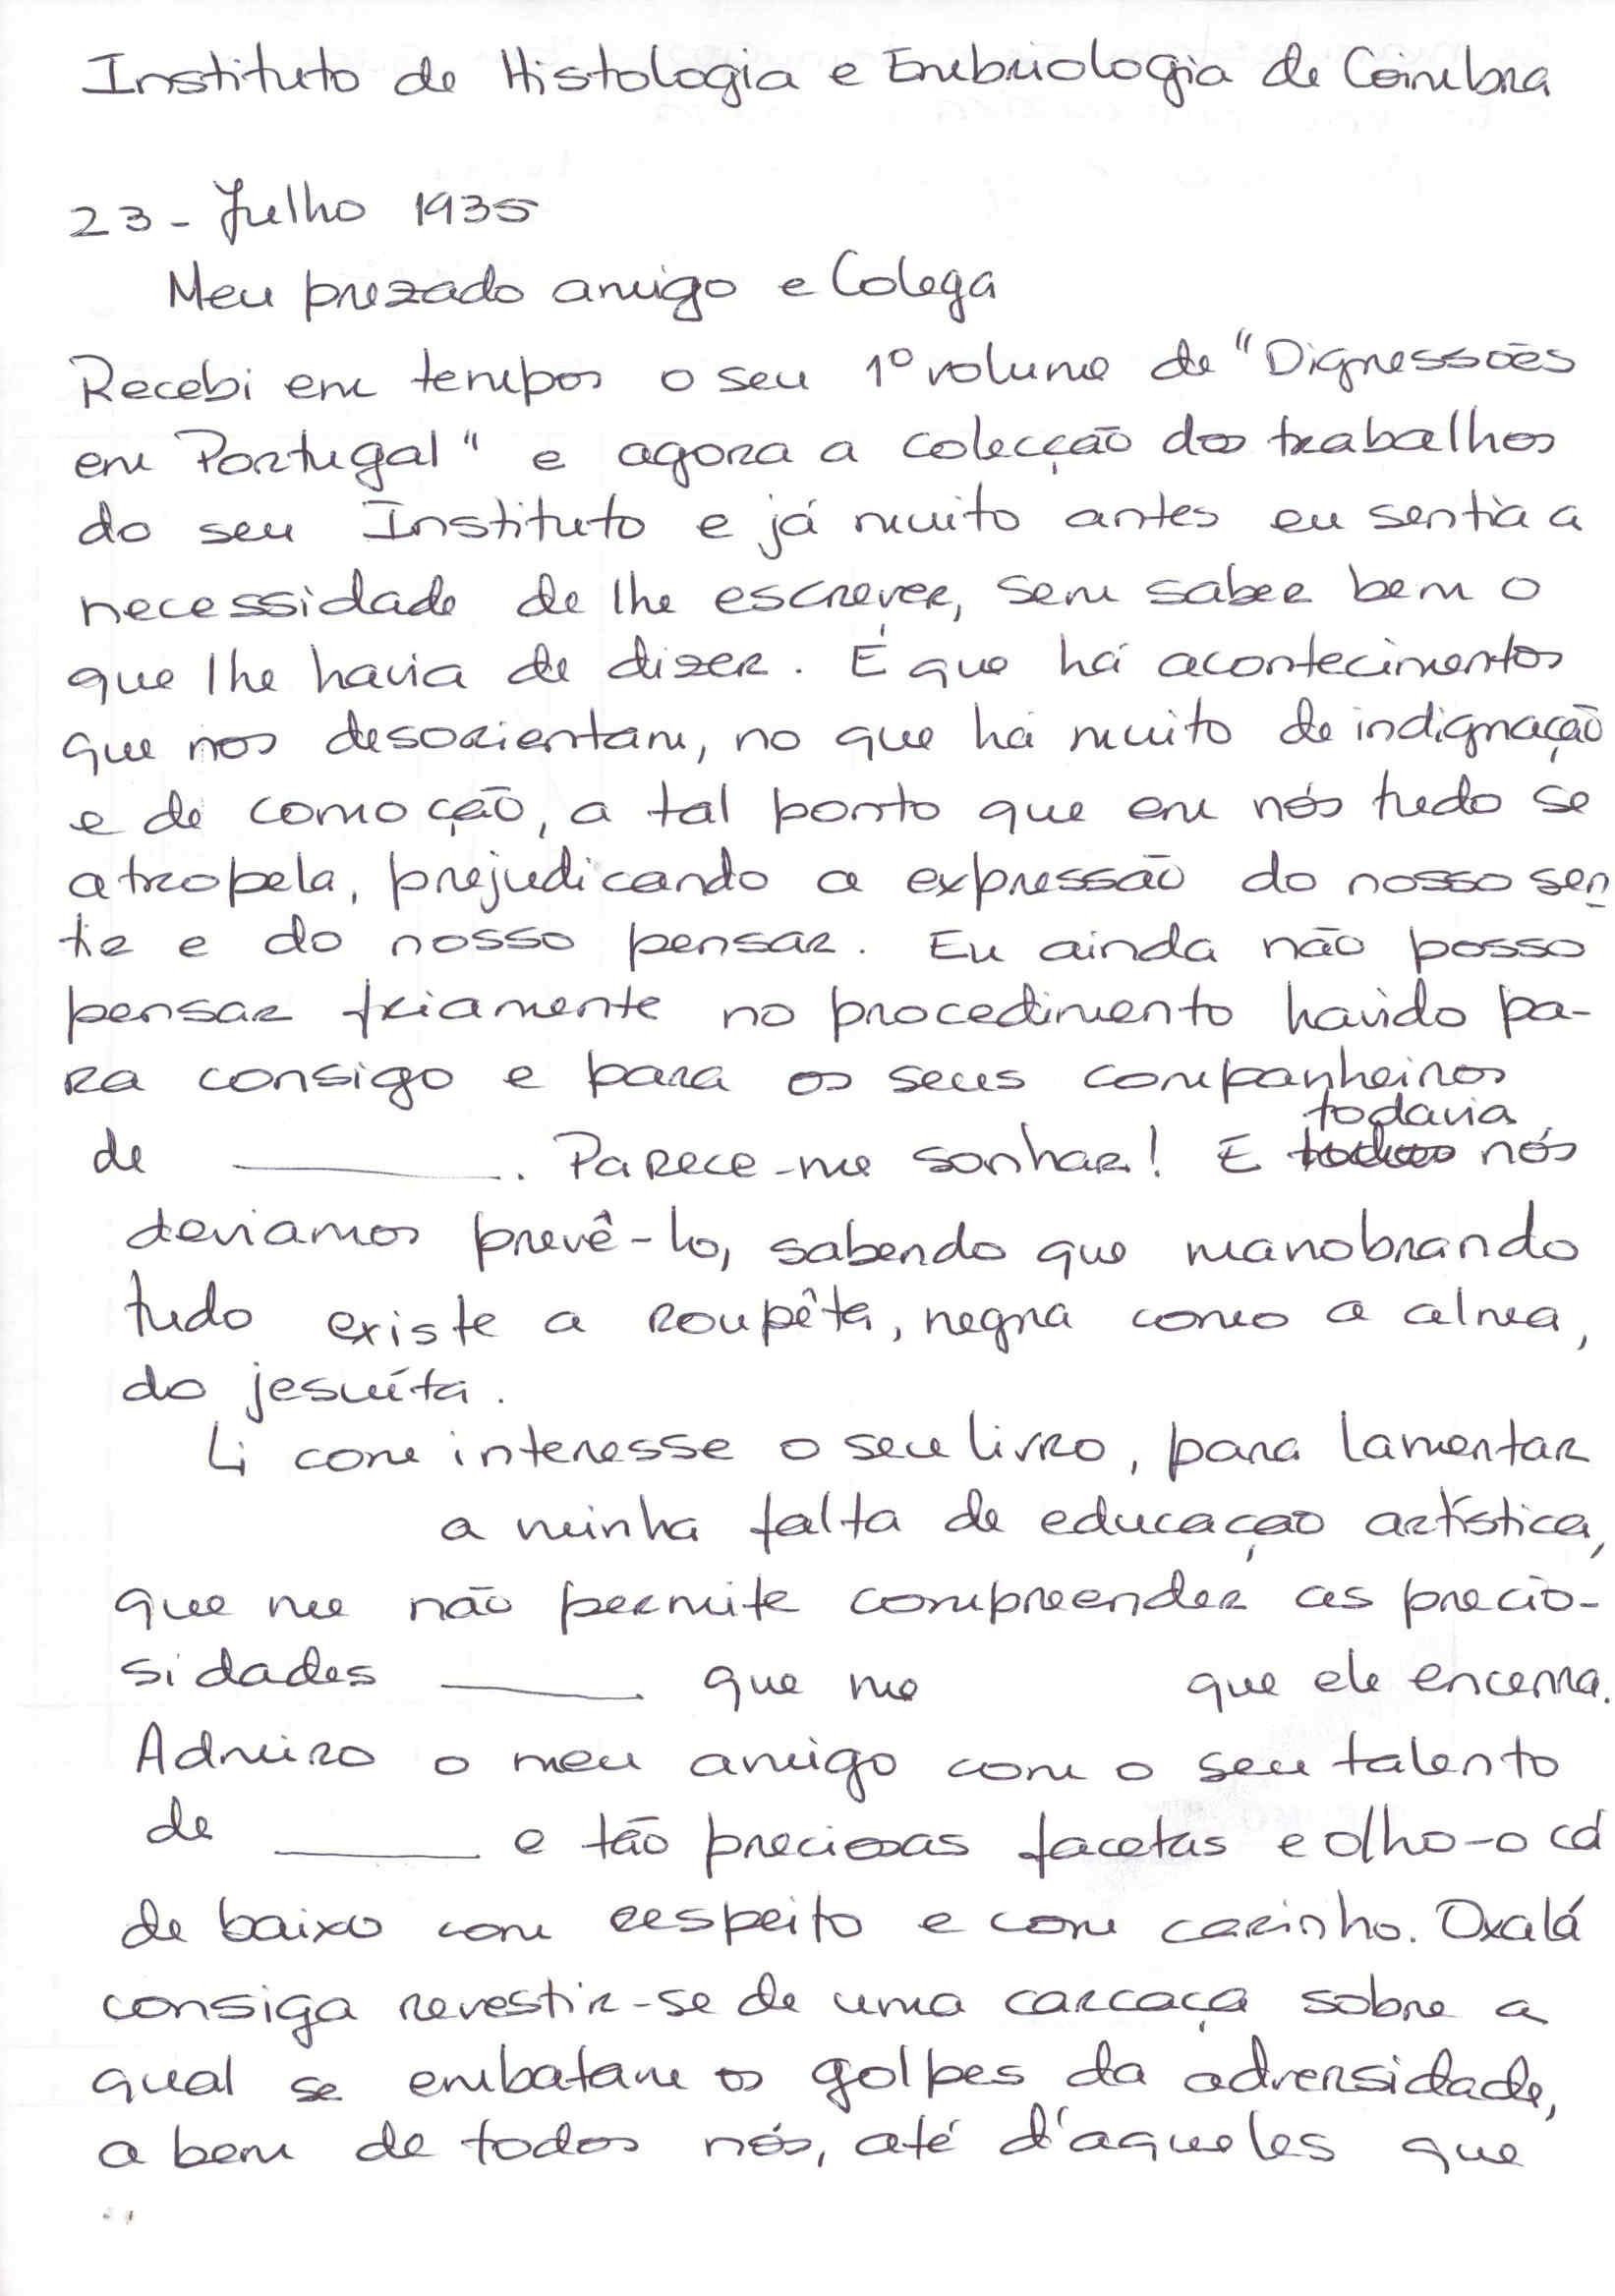 Instituto de Histologia e Embriologia de Coimbra
23 - Julho 1935
Meu prezado amigo e Colega
Recebi em tempos o seu 1º volume de "Digressões
em Portugal" e agora a colecção dos trabalhos
do seu Instituto e já muito antes eu sentia a
necessidade de lhe escrever, sem saber bem o
que lhe havia de dizer. É que há acontecimentos
que nos desorientam, no que há muito de indignação
e de comoção, a tal ponto que em nós tudo se
atropela, prejudicando a expressão do nosso sen
tir e do nosso pensar. Eu ainda não posso
pensar friamente no procedimento havido pa-
ra consigo e para os seus companheiros
de ______. Parece-me sonhar! E todavia nós
deviamos prevê-lo, sabendo que manobrando
tudo existe a roupêta, negra como a alma,
do jesuíta.
Li com interesse o seu livro, para lamentar
a minha falta de educação artística,
que me não permite compreender as precio-
sidades ______ que me que ele encerra.
Admiro o meu amigo com o seu talento
de ______ e tão preciosas facetas e olho-o cá
de baixo com respeito e com carinho. Oxalá
consiga revestir-se de uma carcaça sobre a
qual se embatam os golpes da adversidade,
a bem de todos nós, até d'aqueles que